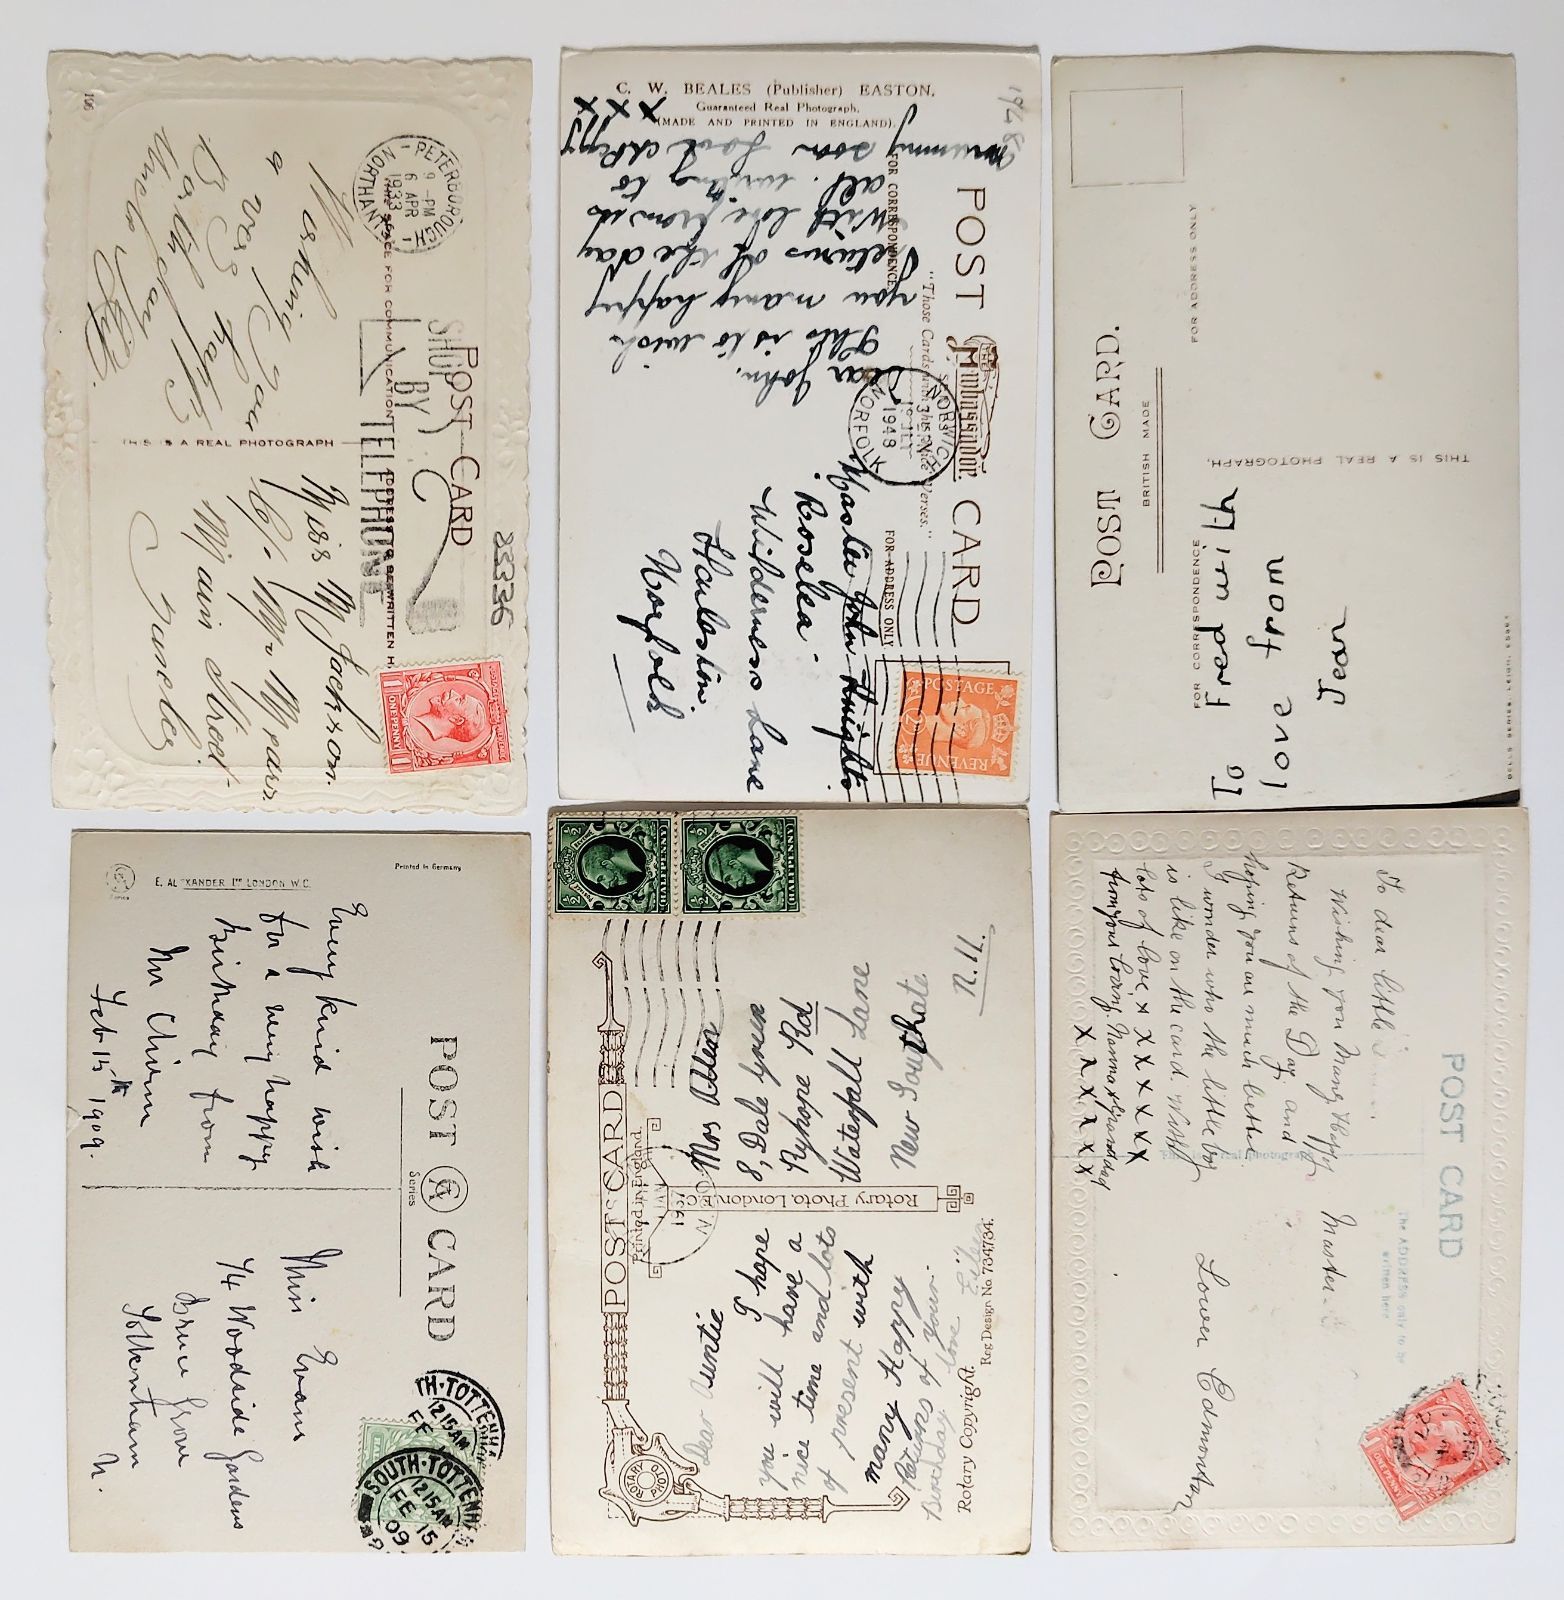 196
POST CARD
THIS SPACE FOR COMMUNICATION
ADDRESS TO BE WRITTEN H
THIS IS A REAL PHOTOGRAPH
PETERBOROUGH
9-PM
6 APR
1933
NORTHANTS
SHOP
BY
TELEPHONE
23336
Wishing
a
very
happy
Birthday
Miss M Jackson.
Main Street
ONE PENNY
C. W. BEALES (Publisher) EASTON.
Guaranteed Real Photograph.
(MADE AND PRINTED IN ENGLAND).
1948
POST CARD
Ambassador
"Those Cards with the Nice Verses."
FOR CORRESPONDENCE
FOR ADDRESS ONLY
X X X X
Dear John.
This is to wish
you many happy
returns of the day
With love from us
all. writing to
mummy soon
NORWICH
1948
NORFOLK
Master John Knights
Roselea.
Wilderness Lane
Norfolk
POSTAGE
2D
REVENUE
POST CARD.
BRITISH MADE
FOR CORRESPONDENCE
FOR ADDRESS ONLY
THIS IS A REAL PHOTOGRAPH.
BELLS SERIES, LEIGH, ESSEX
To Fred with
love from
Jean
E. ALEXANDER LTD LONDON W.C.
Series
Printed in Germany
POST CARD
Series
Every kind wish
for a very happy
Birthday from
Mr Chinn
Feb 15th 1909.
Miss Evans
74 Woodside Gardens
Bruce Grove
Tottenham
N.
TH-TOTTENHA
12 15 AM
FE
SOUTH-TOTTENHA
12 15 AM
FE 15
09
HALFPENNY
HALFPENNY
POST CARD
Printed in England.
Rotary Photo, London, E.C.
ROTARY PHOTO
Rotary Copyright.
Reg Design No. 734734.
1937
Dear Auntie
I hope
you will have a
nice time and lots
of present with
many Happy
Returns of your
Birthday love Eileen
Mrs Allen
8, Dale
Ryhope Rd
Waterfall Lane
New Southgate
N.11.
POST CARD
The ADDRESS only to be
written here
real photograph
To dear little
Wishing you Many Happy
Returns of the Day, and
hoping you are much better
I wonder who the little boy
is like on the card. With
lots of love x X X X X X X
from your loving Nanna & Grandad
X X X X X X
Master
Lower Edmonton
ONE PENNY